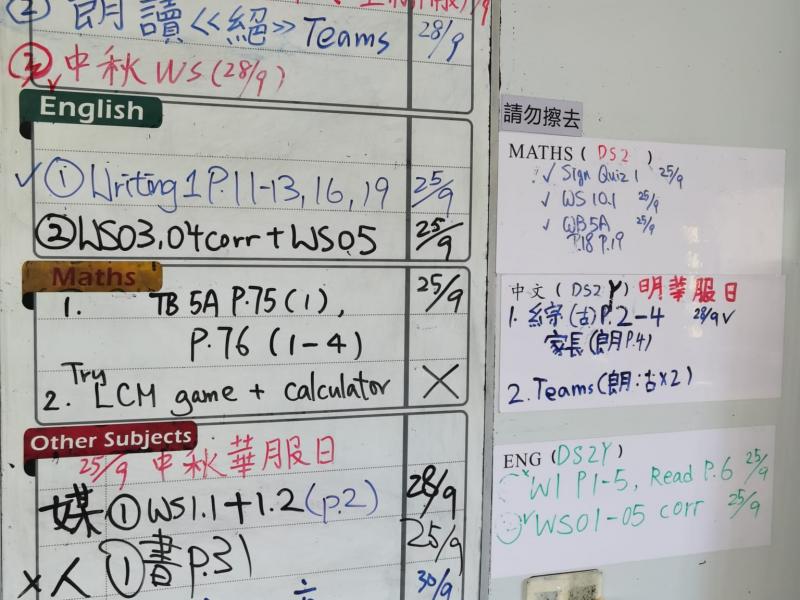 ② 朗讀《絕》Teams 28/9
③ 中秋 WS (28/9)
English
✓ ① Writing 1 P.11-13, 16, 19 25/9
② WS03,04 corr + WS05 25/9
Maths
1. TB 5A P.75 (1), 25/9
P.76 (1-4)
2. Try LCM game + calculator ×
Other Subjects
25/9 中秋華服日
媒 ① WS1.1+1.2 (p.2) 28/9
× 人 ① 書 p.31 25/9
30/9
請勿擦去
MATHS ( DS2 )
✓ Sign Quiz 1 25/9
✓ WS 10.1 25/9
✓ WB5A 25/9
P.18 P.19
中文 ( DS2Y ) 明華服日
1. 綜(古) P.2-4 28/9 ✓
家長(朗 P.4)
2. Teams (朗:古x2)
ENG (DS2Y)
× W1 P1-5, Read P.6 25/9
✓ WS01-05 corr 25/9